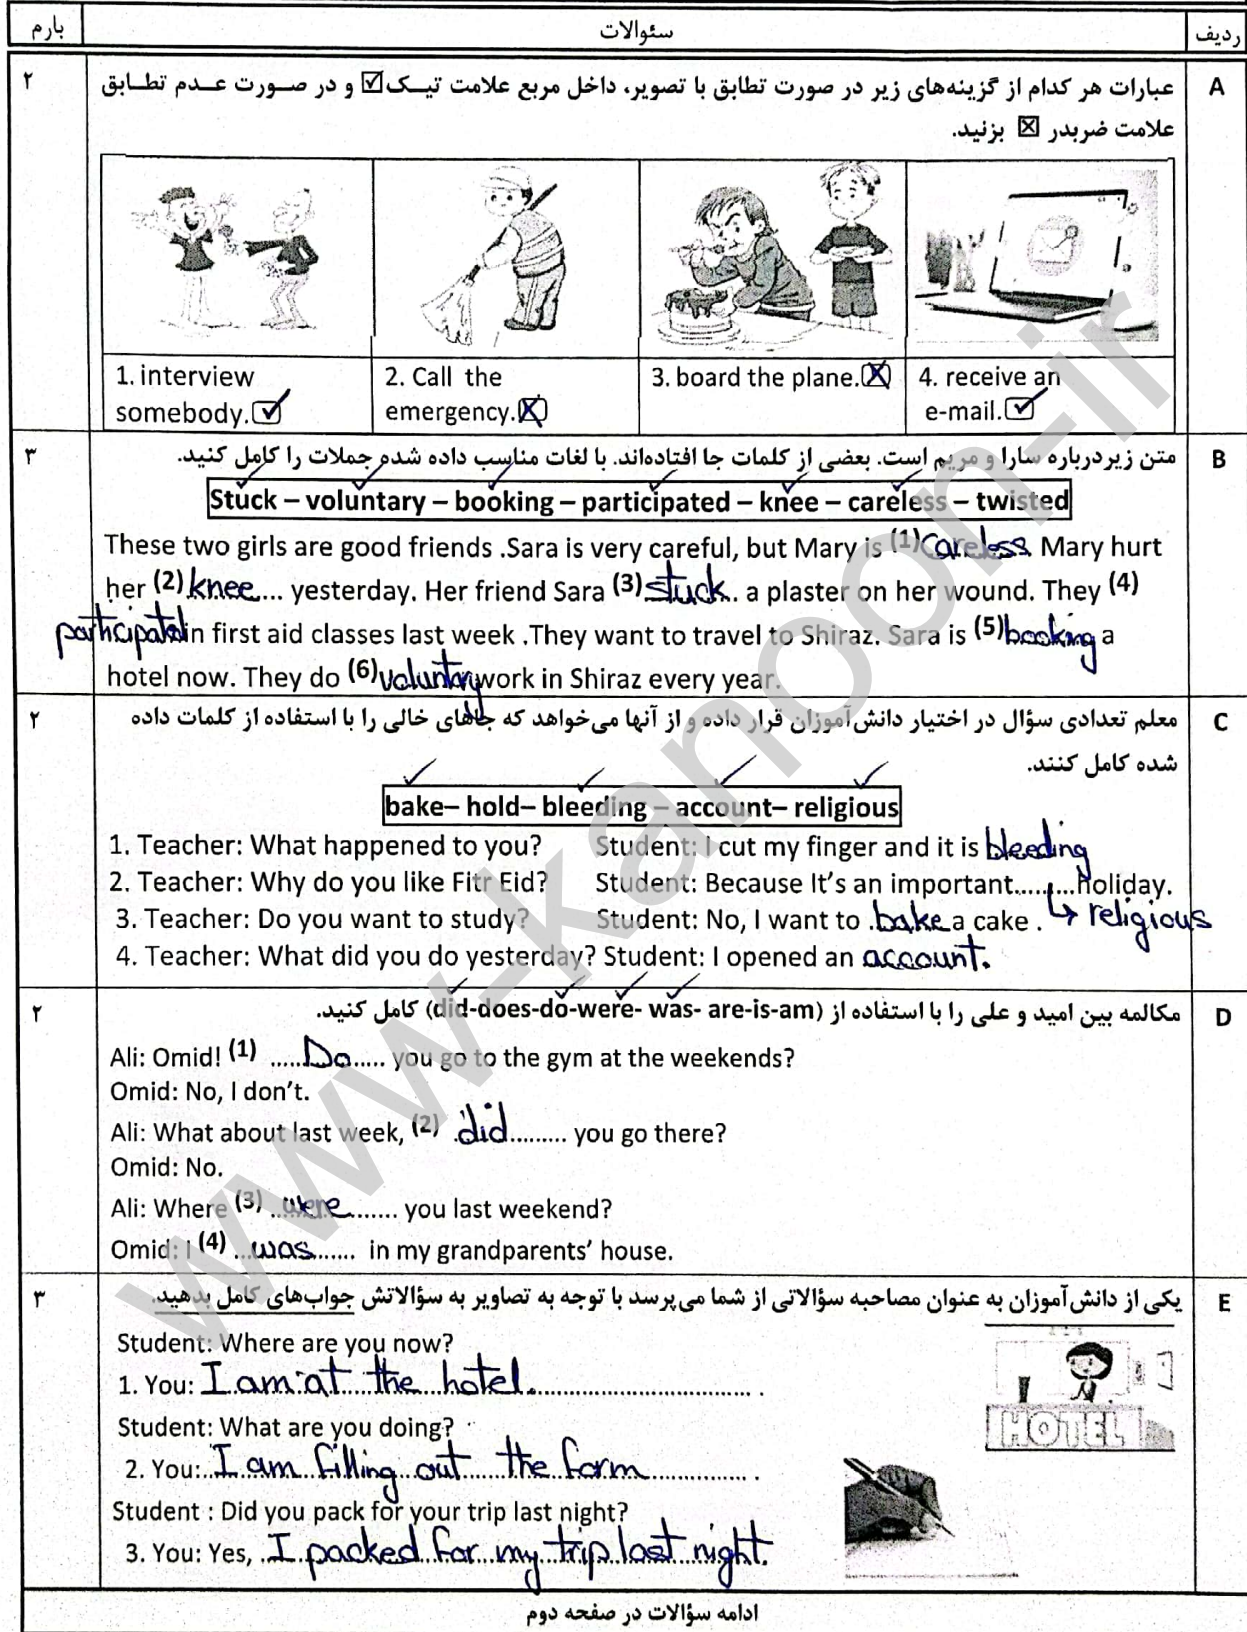 ردیف سئوالات بارم
A عبارات هر کدام از گزینه‌های زیر در صورت تطابق با تصویر، داخل مربع علامت تیک ☑ و در صورت عدم تطابق ۲
علامت ضربدر ☒ بزنید.
1. interview somebody. ☑
2. Call the emergency. ☒
3. board the plane. ☒
4. receive an e-mail. ☑
B متن زیر درباره سارا و مریم است. بعضی از کلمات جا افتاده‌اند. با لغات مناسب داده شده جملات را کامل کنید. ۳
Stuck – voluntary – booking – participated – knee – careless – twisted
These two girls are good friends .Sara is very careful, but Mary is (1) Careless. Mary hurt
her (2) knee.... yesterday. Her friend Sara (3) stuck.. a plaster on her wound. They (4)
participated in first aid classes last week .They want to travel to Shiraz. Sara is (5) booking a
hotel now. They do (6) voluntary work in Shiraz every year.
C معلم تعدادی سؤال در اختیار دانش‌آموزان قرار داده و از آنها می‌خواهد که جاهای خالی را با استفاده از کلمات داده ۲
شده کامل کنند.
bake– hold– bleeding – account– religious
1. Teacher: What happened to you? Student: I cut my finger and it is bleeding
2. Teacher: Why do you like Fitr Eid? Student: Because It's an important.........holiday.
3. Teacher: Do you want to study? Student: No, I want to .bake a cake . ↳ religious
4. Teacher: What did you do yesterday? Student: I opened an account.
D مکالمه بین امید و علی را با استفاده از (did-does-do-were- was- are-is-am) کامل کنید. ۲
Ali: Omid! (1) .....Do..... you go to the gym at the weekends?
Omid: No, I don't.
Ali: What about last week, (2) .did......... you go there?
Omid: No.
Ali: Where (3) ..were....... you last weekend?
Omid: I (4) ...was....... in my grandparents' house.
E یکی از دانش‌آموزان به عنوان مصاحبه سؤالاتی از شما می‌پرسد با توجه به تصاویر به سؤالاتش جواب‌های کامل بدهید. ۳
Student: Where are you now?
1. You: I am at the hotel. .
HOTEL
Student: What are you doing?
2. You: I am filling out the form .
Student : Did you pack for your trip last night?
3. You: Yes, I packed for my trip last night.
ادامه سؤالات در صفحه دوم
www-kanoon-ir